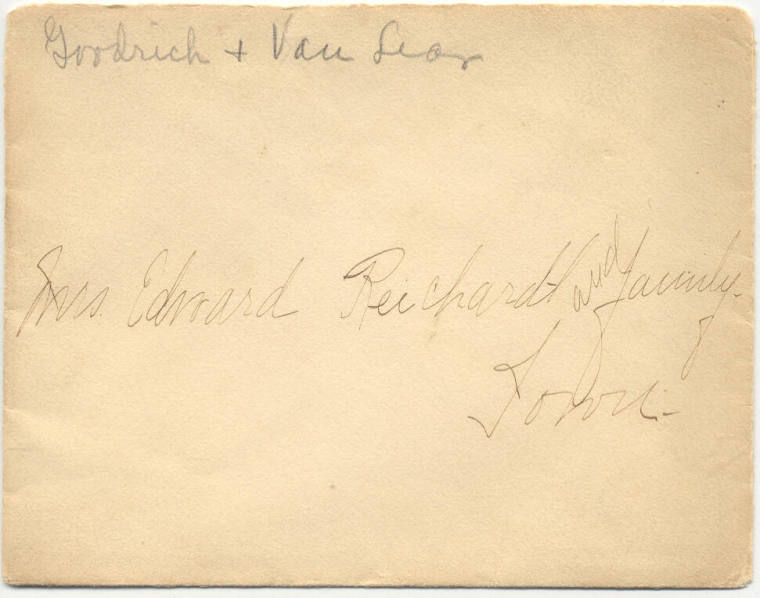 Goodrich + Van Lear
Mrs. Edward Reichardt and family.
Town.-